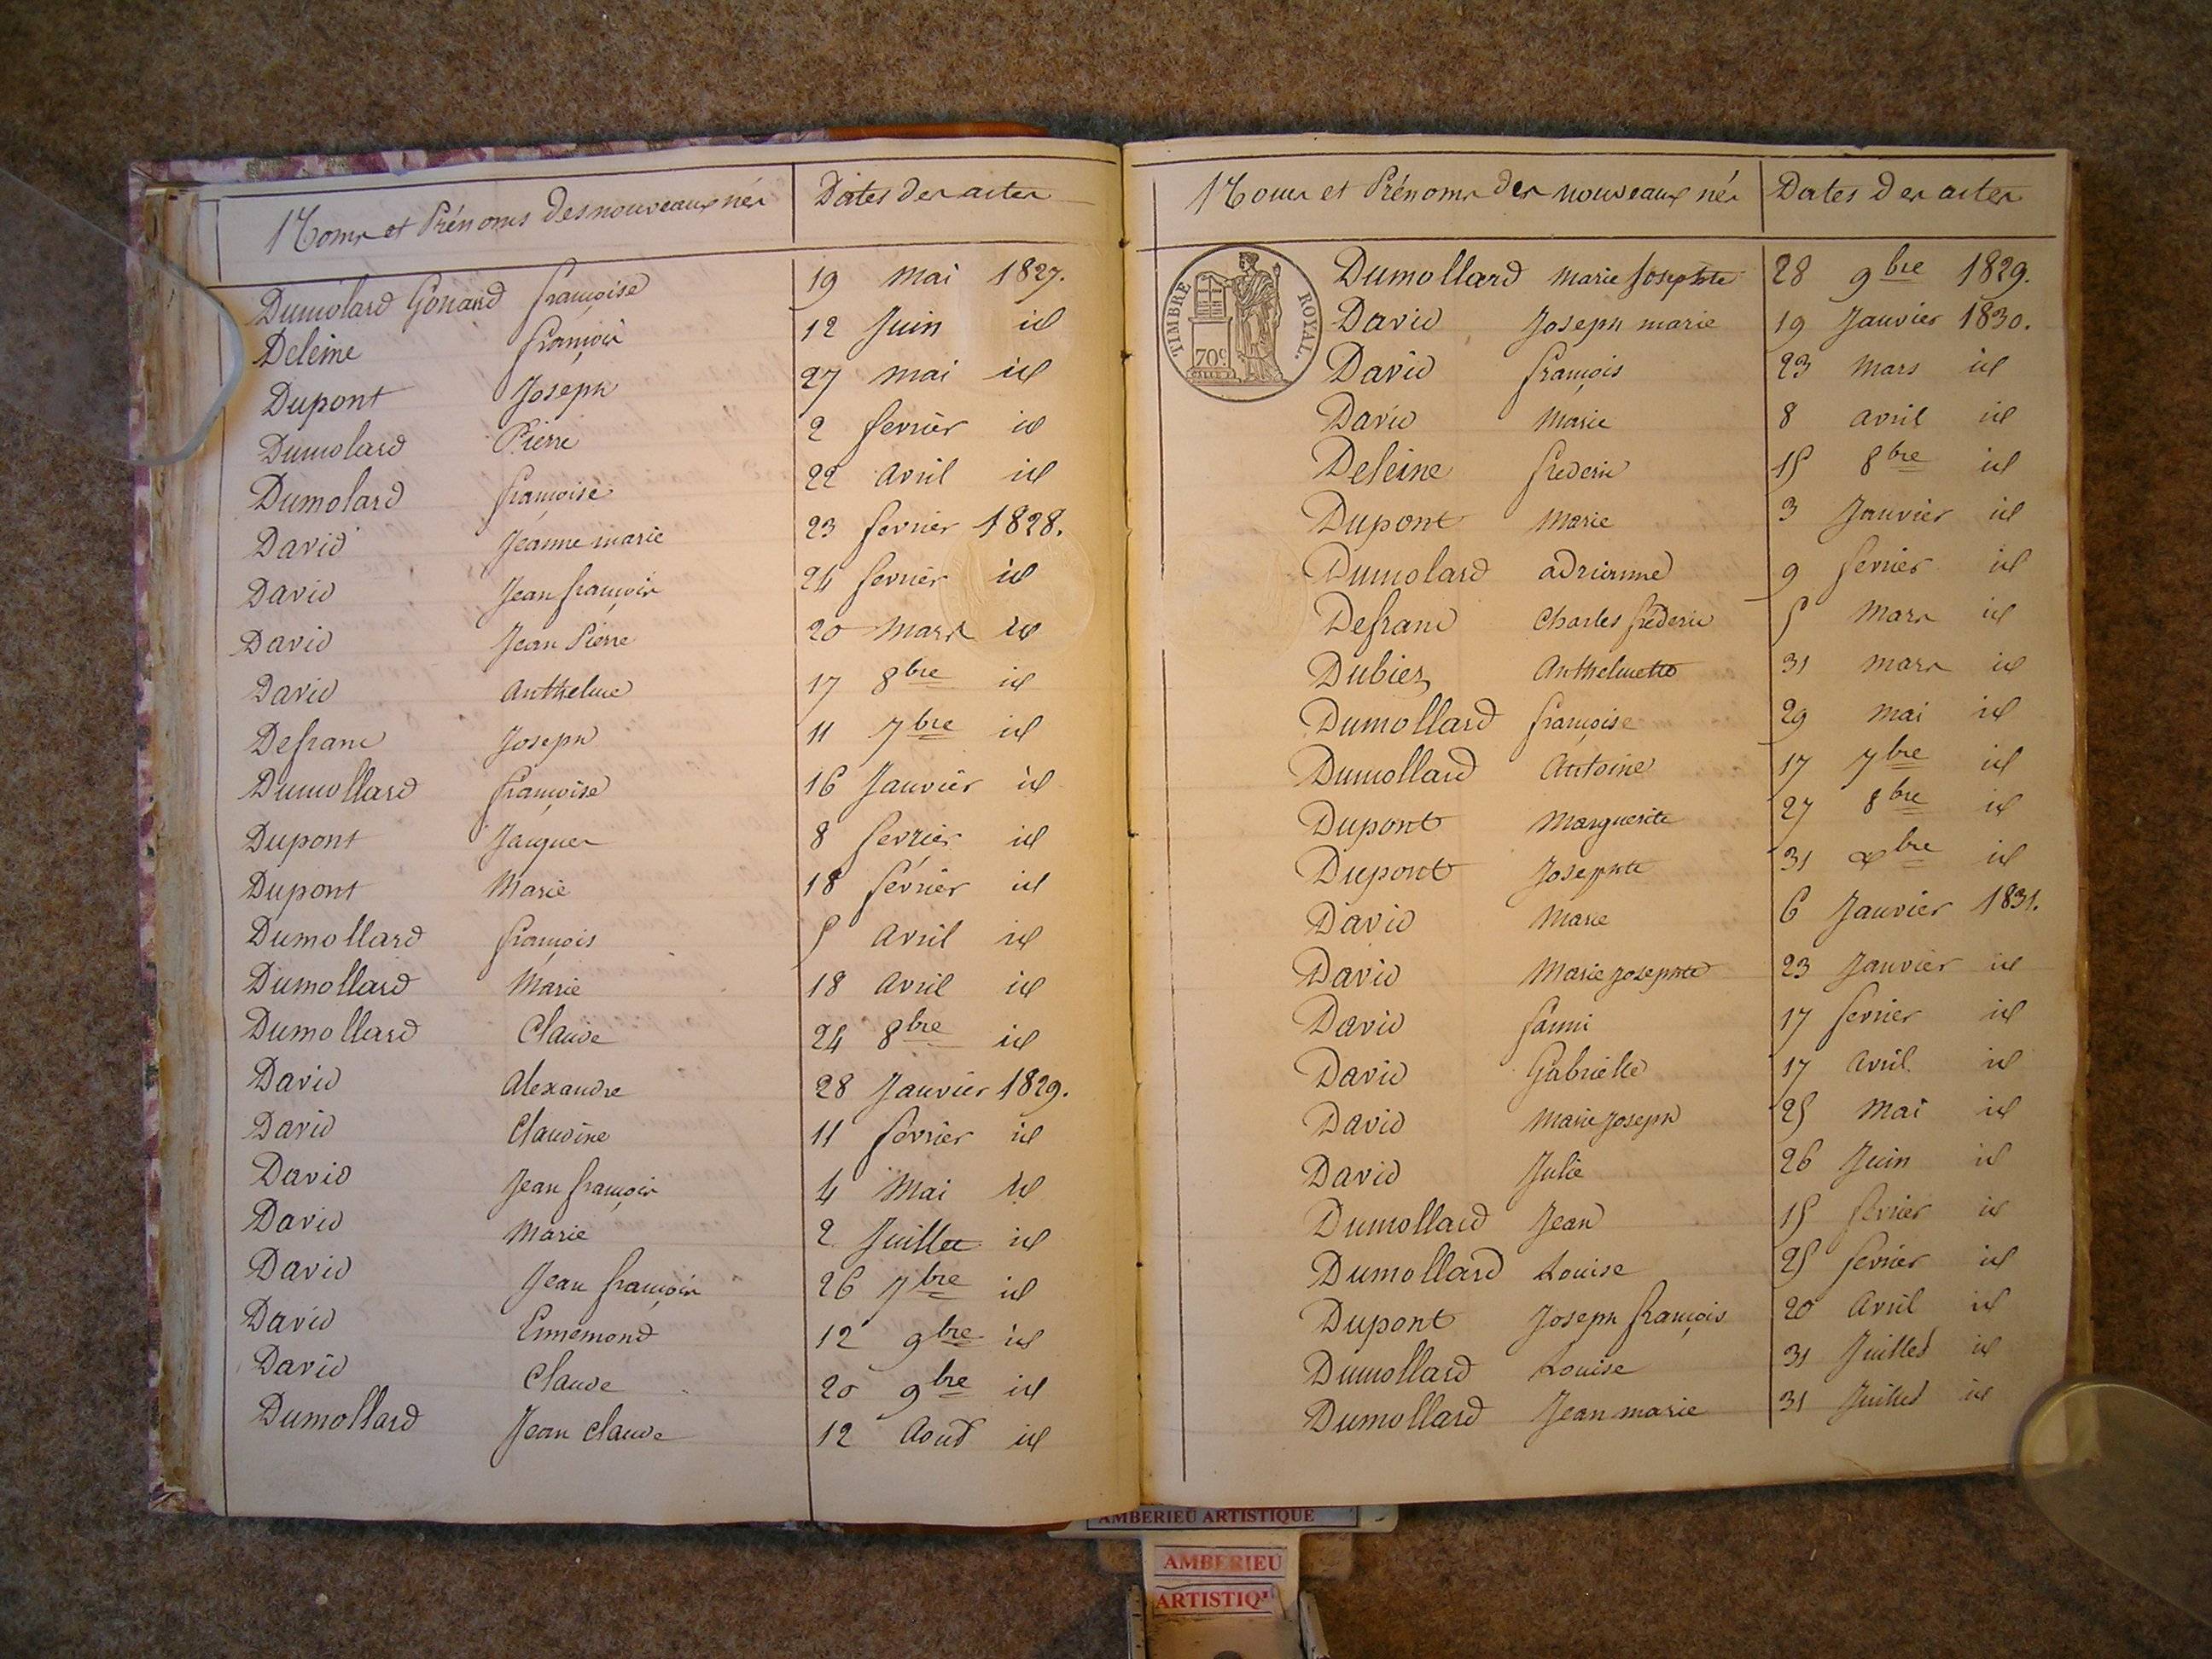 Noms et Prénoms des nouveaux nés Dates des actes
Dumolard Gonard françoise 19 Mai 1827.
Deleine françois 12 Juin id
Dupont Joseph 27 mai id
Dumolard Pierre 2 fevrier id
Dumolard françoise 22 avril id
David Jeanne marie 23 fevrier 1828.
David Jean françois 24 fevrier id
David Jean Pierre 20 Mars id
David Anthelme 17 8bre id
Defranc Joseph 11 7bre id
Dumollard françoise 16 Janvier id
Dupont Jacques 8 fevrier id
Dupont Marie 18 février id
Dumollard françois 5 Avril id
Dumollard Marie 18 Avril id
Dumollard Claude 24 8bre id
David Alexandre 28 Janvier 1829.
David Claudine 11 fevrier id
David Jean françois 4 Mai id
David Marie 2 Juillet id
David Jean françois 26 7bre id
David Ennemond 12 9bre id
David Claude 20 9bre id
Dumollard Jean Claude 12 Aout id
Noms et Prénoms des nouveaux nés Dates des actes
TIMBRE ROYAL.
70c
Dumollard Marie Josephte 28 9bre 1829.
David Joseph marie 19 Janvier 1830.
David françois 23 Mars id
David Marie 8 avril id
Deleine frederic 15 8bre id
Dupont Marie 3 Janvier id
Dumolard adrianne 9 fevrier id
Defranc Charles fréderic 5 Mars id
Dubiez Anthelmette 31 mars id
Dumollard françoise 29 Mai id
Dumollard Antoine 17 7bre id
Dupont Marguerite 27 8bre id
Dupont Josephte 31 xbre id
David Marie 6 Janvier 1831.
David Marie josephte 23 Janvier id
David fanni 17 fevrier id
David Gabrielle 17 Avril id
David Marie Joseph 25 Mai id
David Julie 26 Juin id
Dumollard Jean 15 février id
Dumollard Louise 25 fevrier id
Dupont Joseph françois 20 Avril id
Dumollard Louise 31 Juillet id
Dumollard Jean marie 31 Juillet id
AMBERIEU ARTISTIQUE
AMBERIEU
ARTISTIQ